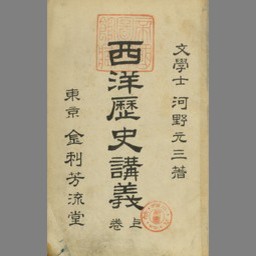 文學士 河野元三著
西洋歷史講義 上卷
東京 金刺芳流堂